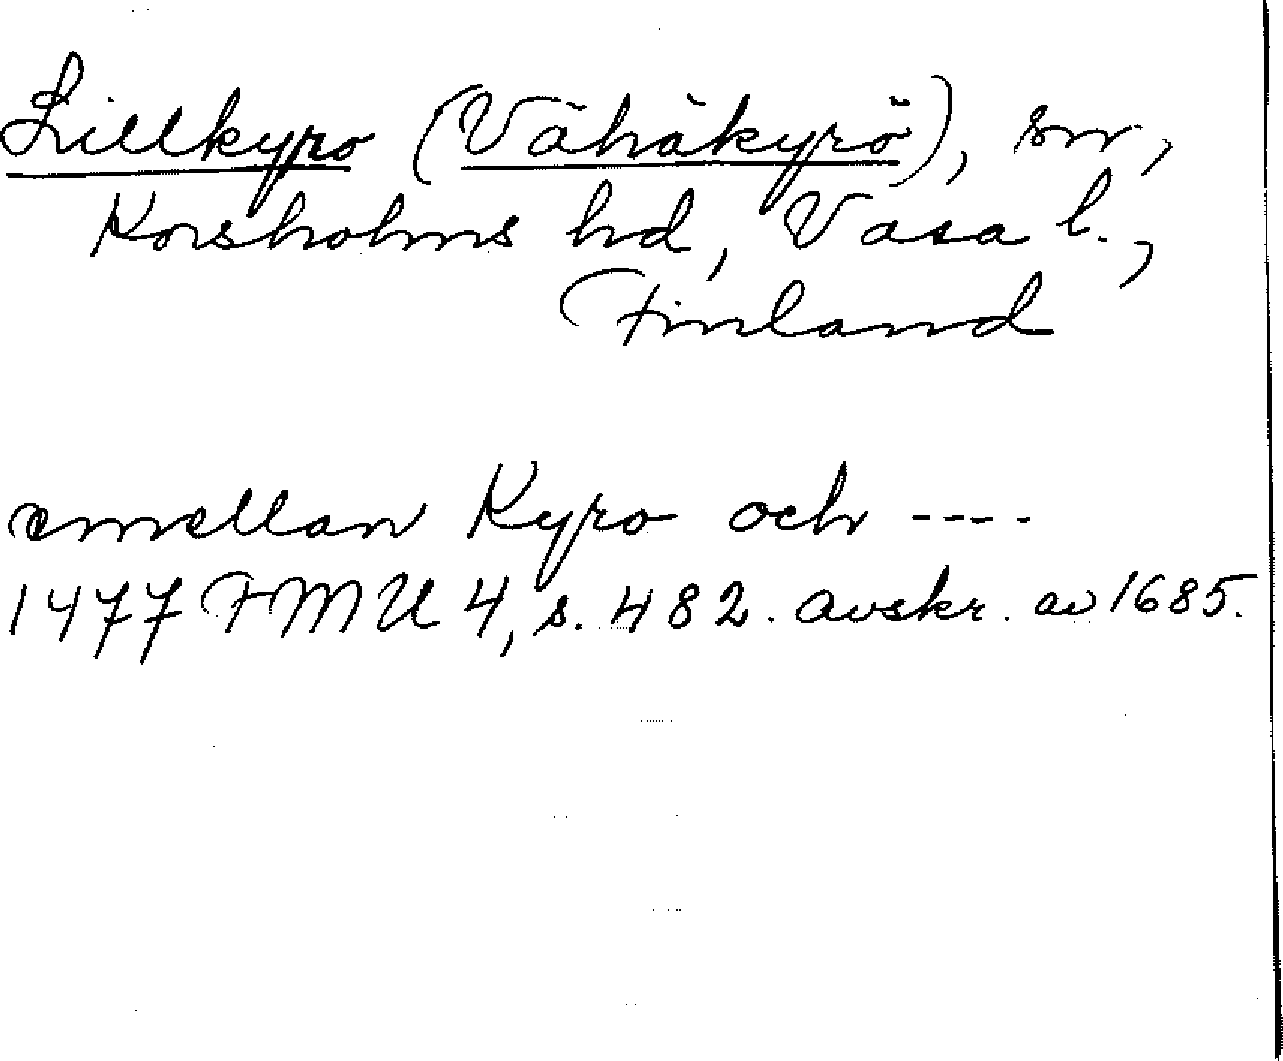 Lillkyro (Vähäkyrö), sn,
Korsholms hd, Vasa l.,
Finland
emellan Kyro och ----
1477 FMU 4, s. 482. avskr. av 1685.